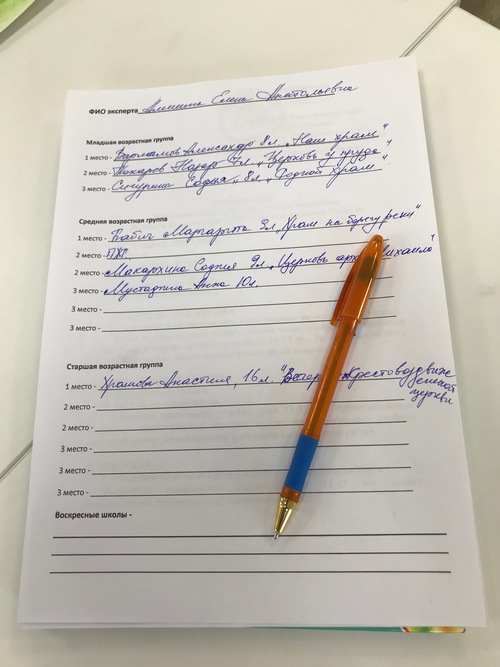 ФИО эксперта Алешина Елена Анатольевна
Младшая возрастная группа
1 место - Варламов Александр 8 л „Наш храм"
2 место - Токарев Назар 7 л „Церковь у пруда"
3 место - Сичурина София, 8 л „Родной храм"
Средняя возрастная группа
1 место - Бабич Маргарита 9 л „Храм на берегу реки"
2 место -
2 место - Макархина София 9 л. „Церковь арх. Михаила"
3 место - Анна 10 л.
3 место -
3 место -
Старшая возрастная группа
1 место - Храмова Анастасия, 16 л. " Крестовоздвиженской церкви
2 место -
2 место -
3 место -
3 место -
3 место -
Воскресные школы -